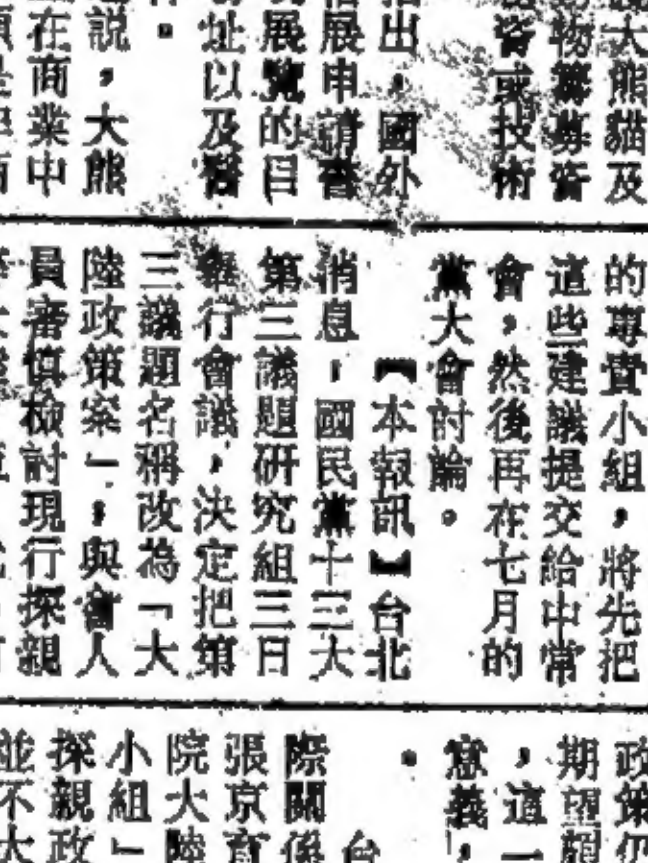 大熊貓及
物籌募資
資或技術
出,國外
展申請書
展覽的目
址以及醫
。
說,大熊
在商業中
的專責小組,將先把
這些建議提交給中常
會,然後再在七月的
黨大會討論。
【本報訊】台北
消息,國民黨十三大
第三議題研究組三日
舉行會議,決定把第
三議題名稱改為「大
陸政策案」,與會人
員審慎檢討現行探親
政策仍
期望頗
,這一
意義,
。
台
際關係
張京育
院大陸
小組」
探親政
並不大